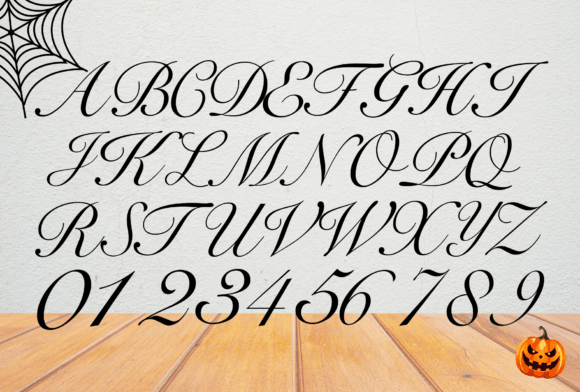 ABCDEFGHI
JKLMNOPQ
RSTUVWXYZ
0123456789